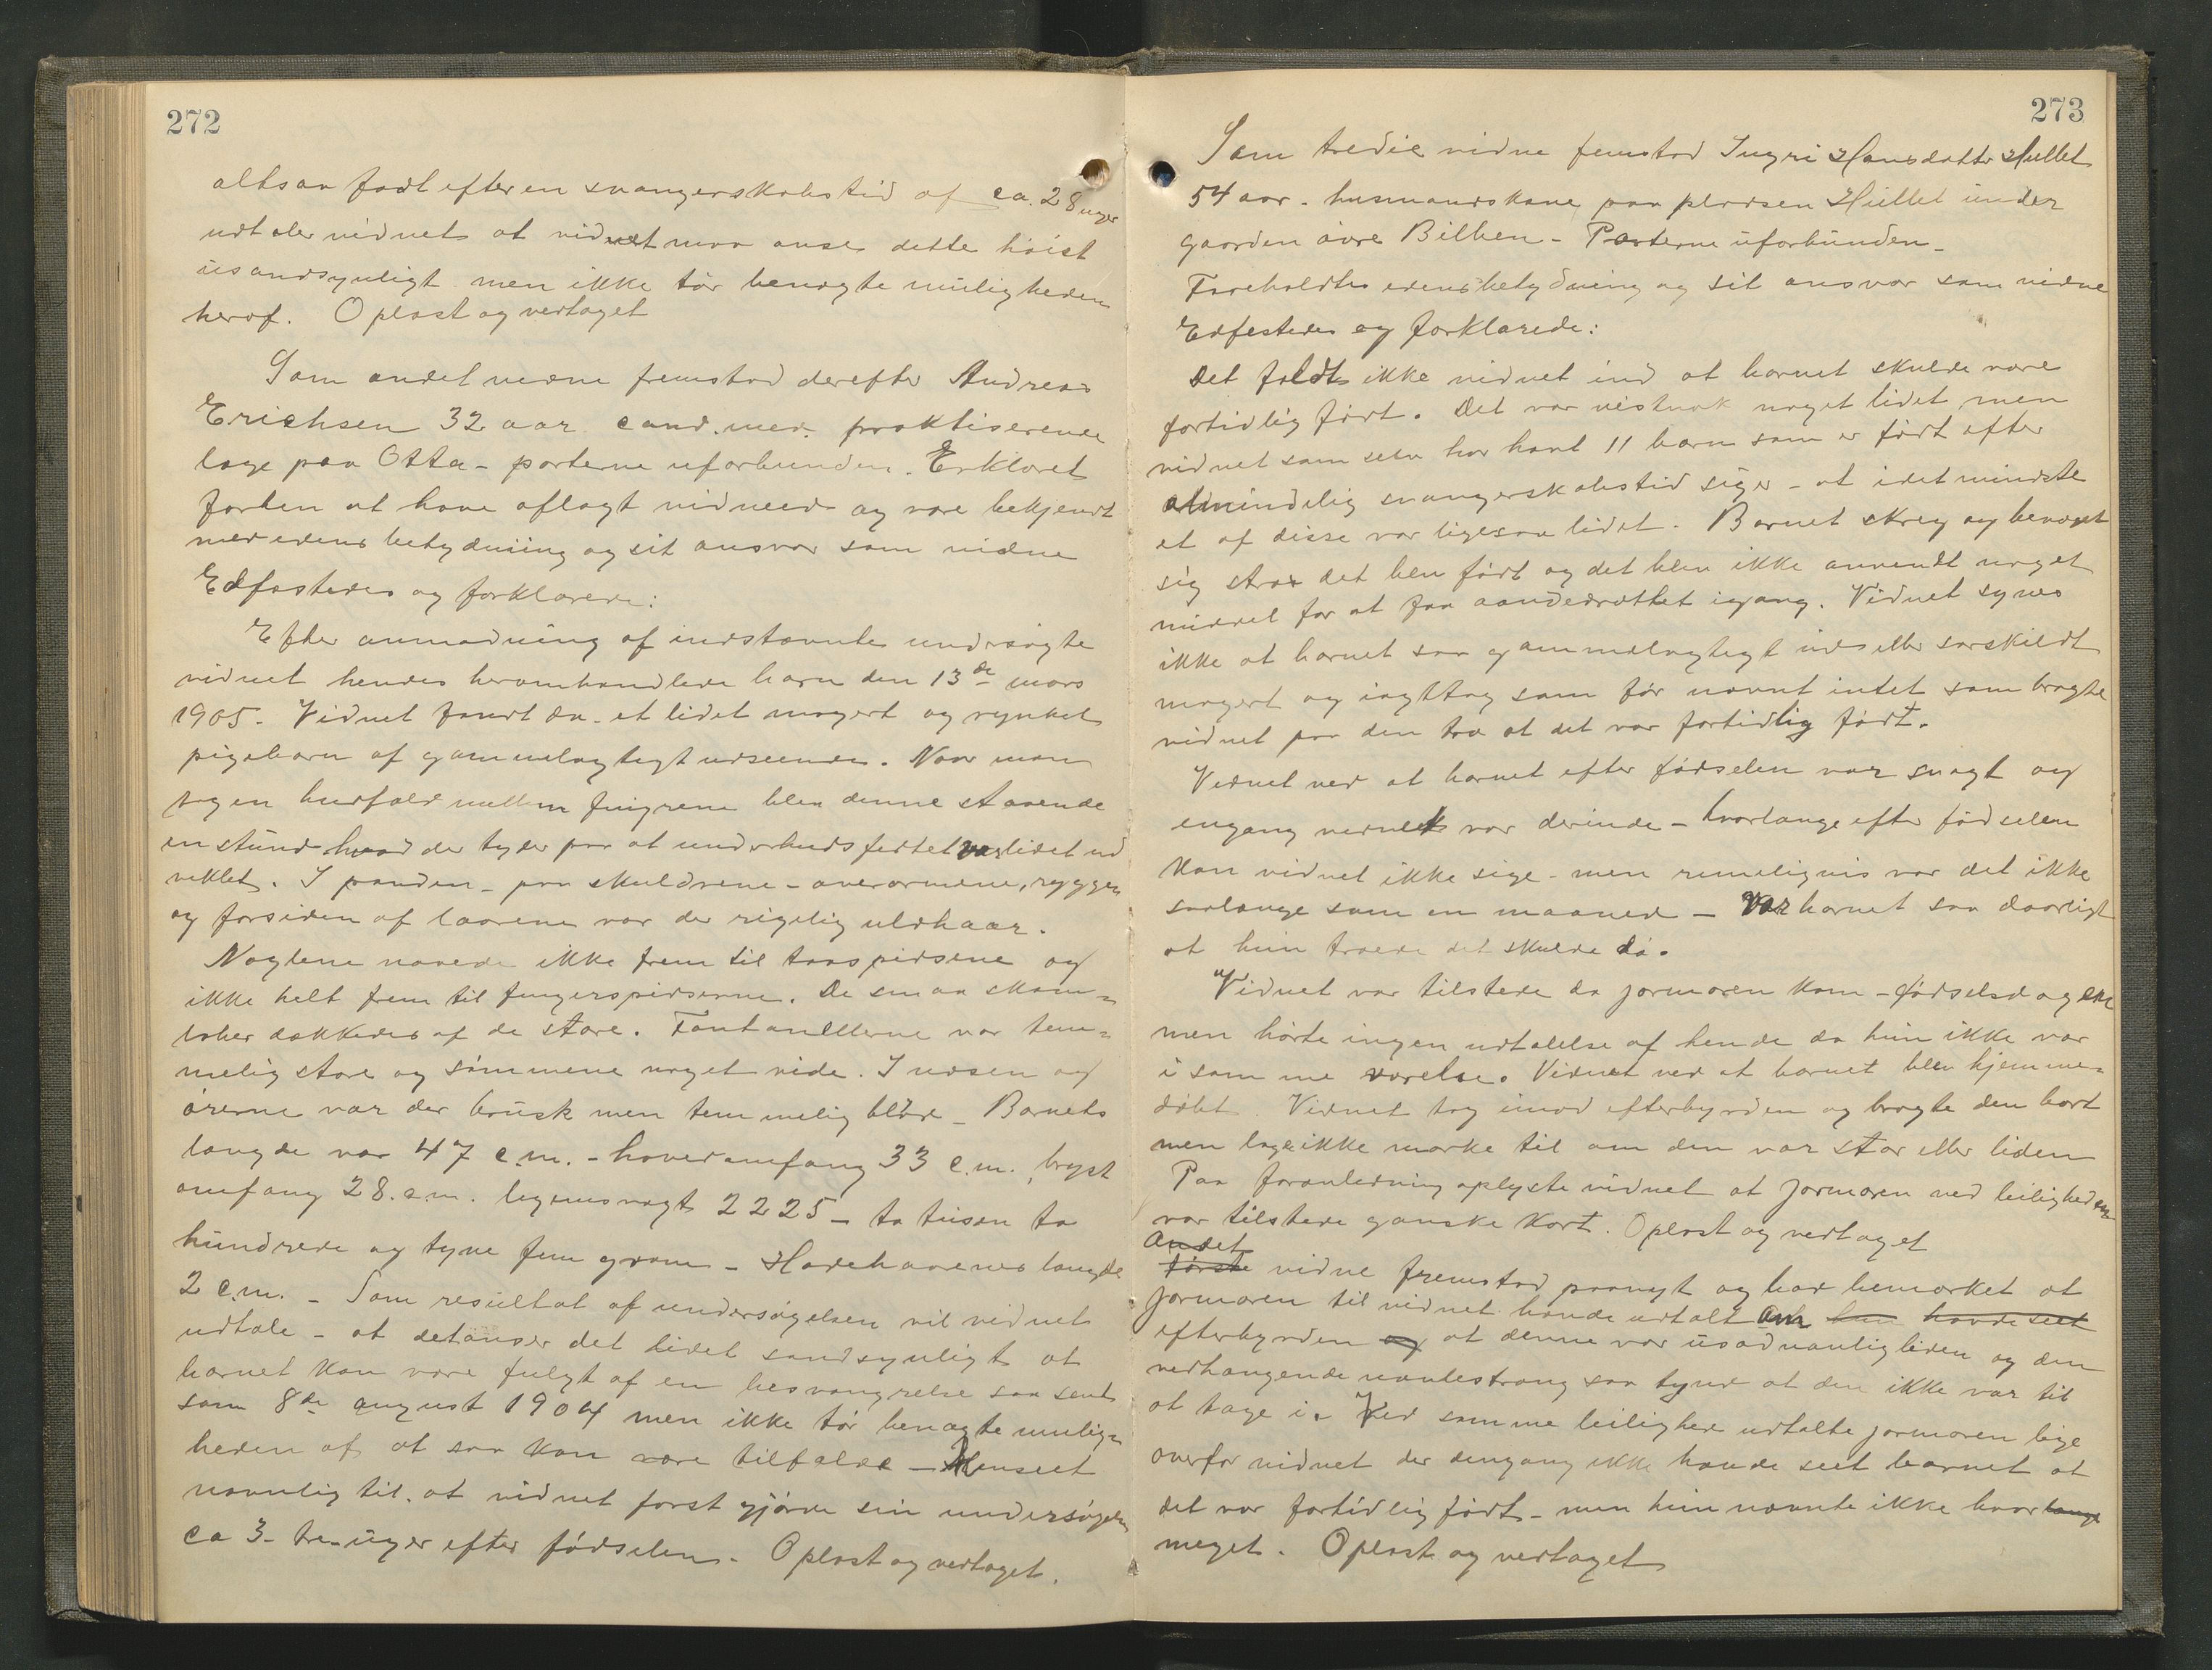 272
altsaa født efter en svangerskabstid af ca. 28 uger
udtaler vidnet at vidnet maa anse dette høist
usandsynligt men ikke tør benægte muligheden
heraf. Oplæst og vedtaget
Som andet vidne fremstod derefter Andreas
Erichsen 32 aar cand. med. praktiserende
læge paa Otta - parterne uforbunden. Erklæret
forhen at have aflagt vidneed og være bekjendt
med edens betydning og sit ansvar som vidne
Edfæstedes og forklarede:
Efter anmodning af indstævnte undersøgte
vidnet hendes heromhandlede barn den 13de mars
1905. Vidnet fandt da et lidet magert og rynket
pigebarn af gammelagtigt udseende. Naar man
tog en hudfold mellem fingrene blev denne staaende
en stund hvad der tyder paa at underhudsfedtet var lidet ud
viklet. I panden - paa skuldrene - overarmene, ryggen
og forsiden af laarene var der rigelig uldhaar.
Naglene naaede ikke frem til taaspidsene og
ikke helt frem til fingerspidserne. De smaa skam=
læber dækkedes af de store. Fontanellerne var tem=
melig store og sømmene noget vide. I næsen og
ørerne var der brusk men temmelig blød - Barnets
længde var 47 c.m. - hovedomfang 33 c.m., bryst
omfang 28 c.m. legemsvægt 2225 - to tusen to
hundrede og tyve fem gram - Hovedhaarenes længde
2 c.m. - Som resultat af undersøgelsen vil vidnet
udtale - at det anser det lidet sandsynligt at
barnet kan være fulgt af en besvangrelse saa sent
som 8de august 1904 men ikke tør benægte mulig=
heden af at saa kan være tilfælde - Henseet
navnlig til at vidnet først gjorde sin undersøgelse
ca 3 - tre - uger efter fødselen. Oplæst og vedtaget.
273
Som tredie vidne fremstod Ingri Hansdatter Hullet
54 aar - husmandskone paa pladsen Hullet under
gaarden øvre Bilben - Parterne uforbunden -
Foreholdtes edens betydning og sit ansvar som vidne
Edfestedes og forklarede:
Det faldt ikke vidnet ind at barnet skulde være
fortidlig født. Det var vistnok noget lidet men
vidnet som selv har havt 11 barn som er født efter
almindelig svangerskabstid siger - at idetmindste
et af disse var ligesaa lidet. Barnet skreg og bevæget
sig strax det blev født og det blev ikke anvendt noget
middel for at faa aandedrættet igang. Vidnet synes
ikke at barnet saa gammelagtigt ud eller særskildt
magert og iagttog som før nævnt intet som bragte
vidnet paa den tro at det var fortidlig født.
Vidnet ved at barnet efter fødselen var svagt og
engang vidnet var derinde - hvorlænge efter fødselen
kan vidnet ikke sige - men rimeligvis var det ikke
saalænge som en maaned - var barnet saa daarligt
at hun troede det skulde dø.
Vidnet var tilstede da jormoren kom - fødselsdagen
men hørte ingen udtalelse af hende da hun ikke var
i samme værelse. Vidnet ved at barnet blev hjemme=
døbt. Vidnet tog imod efterbyrden og bragte den bort
men lagde ikke mærke til om den var stor eller liden
Paa foranledning oplyste vidnet at jormoren ved leiligheden
var tilstede ganske kort. Oplæst og vedtaget
Andet
første vidne fremstod paanyt og har bemerket at
jormoren til vidnet havde udtalt om hun havde seet
efterbyrden og at denne var usædvanlig liden og den
vedhængende navlestræng saa tynd at den ikke var til
at tage i. Ved samme leilighed udtalte jormoren lige
overfor vidnet der dengang ikke havde seet barnet at
det var fortidlig født - men hun nævnte ikke hvor længe
meget. Oplæst og vedtaget